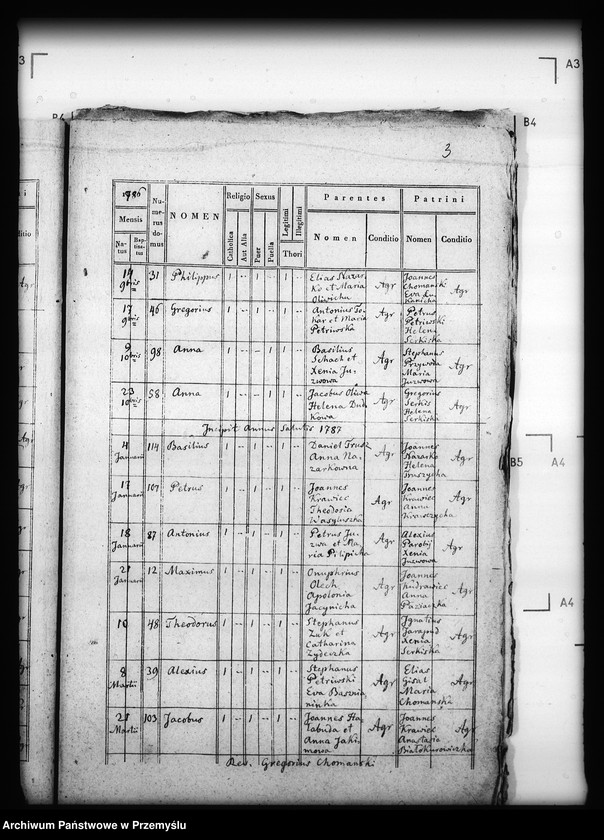 A3
B4
3
1786
Mensis
Na-
tus
Bap-
tisa-
tus
Nu-
me-
rus
do-
mus
NOMEN
Religio
Catholica
Aut Alia
Sexus
Puer
Puella
Legitimi
Illegitimi
Thori
Parentes
Nomen
Conditio
Patrini
Nomen
Conditio
14 9bris 31 Philippus 1 1 1
Elias Nazar-
ko et Maria
Oliwicha
Agr
Joannes
Chomanski
Eva Lu-
Agr
17 9bris 46 Gregorius 1 1 1
Antonius To-
kar et Maria
Petriwska
Agr
Petrus
Petriwski
Helena
Serkiska
Agr
9 10bris 98 Anna 1 1 1
Basilius
Schach et
Xenia Ju-
zwowa
Agr
Stephanus
Maria
Juzwowa
Agr
23 10bris 58 Anna 1 1 1
Jacobus Oliwa
Helena Dud
kowa
Agr
Gregorius
Serkis
Helena
Serkiska
Agr
Incipit Annus Salutis 1787
4 Januarii 114 Basilius 1 1 1
Daniel Trusz
Anna Na-
zarkowna
Agr
Joannes
Nazarko
Helena
Truszycha
Agr
17 Januarii 107 Petrus 1 1 1
Joannes
Krawiec
Theodosia
Agr
Joannes
Krawiec
Anna
Krawczycha
Agr
18 Januarii 87 Antonius 1 1 1
Petrus Ju-
zwa et Ma-
ria Pilipicha
Agr
Alexius
Parobij
Xenia
Juzwowa
Agr
21 Januarii 12 Maximus 1 1 1
Onuphrius
Olech
Apolonia
Jacynicha
Agr
Joannes
Kudrawiec
Anna
Paziaczka
Agr
10 48 Theodorus 1 1 1
Stephanus
Zuk et
Catharina
Zydeczka
Agr
Ignatius
Sarapud
Xenia
Serkiska
Agr
8 Martii 39 Alexius 1 1 1
Stephanus
Petriwski
Eva Basznia
ninka
Agr
Elias
Gisal
Maria
Chomanska
Agr
21 Martii 103 Jacobus 1 1 1
Joannes Ha-
labuda et
Anna Jaki-
mowa
Agr
Joannes
Krawiec
Anastasia
Białokurowiczka
Agr
Rev. Gregorius Chomanski
B5
A4
A4
Archiwum Państwowe w Przemyślu